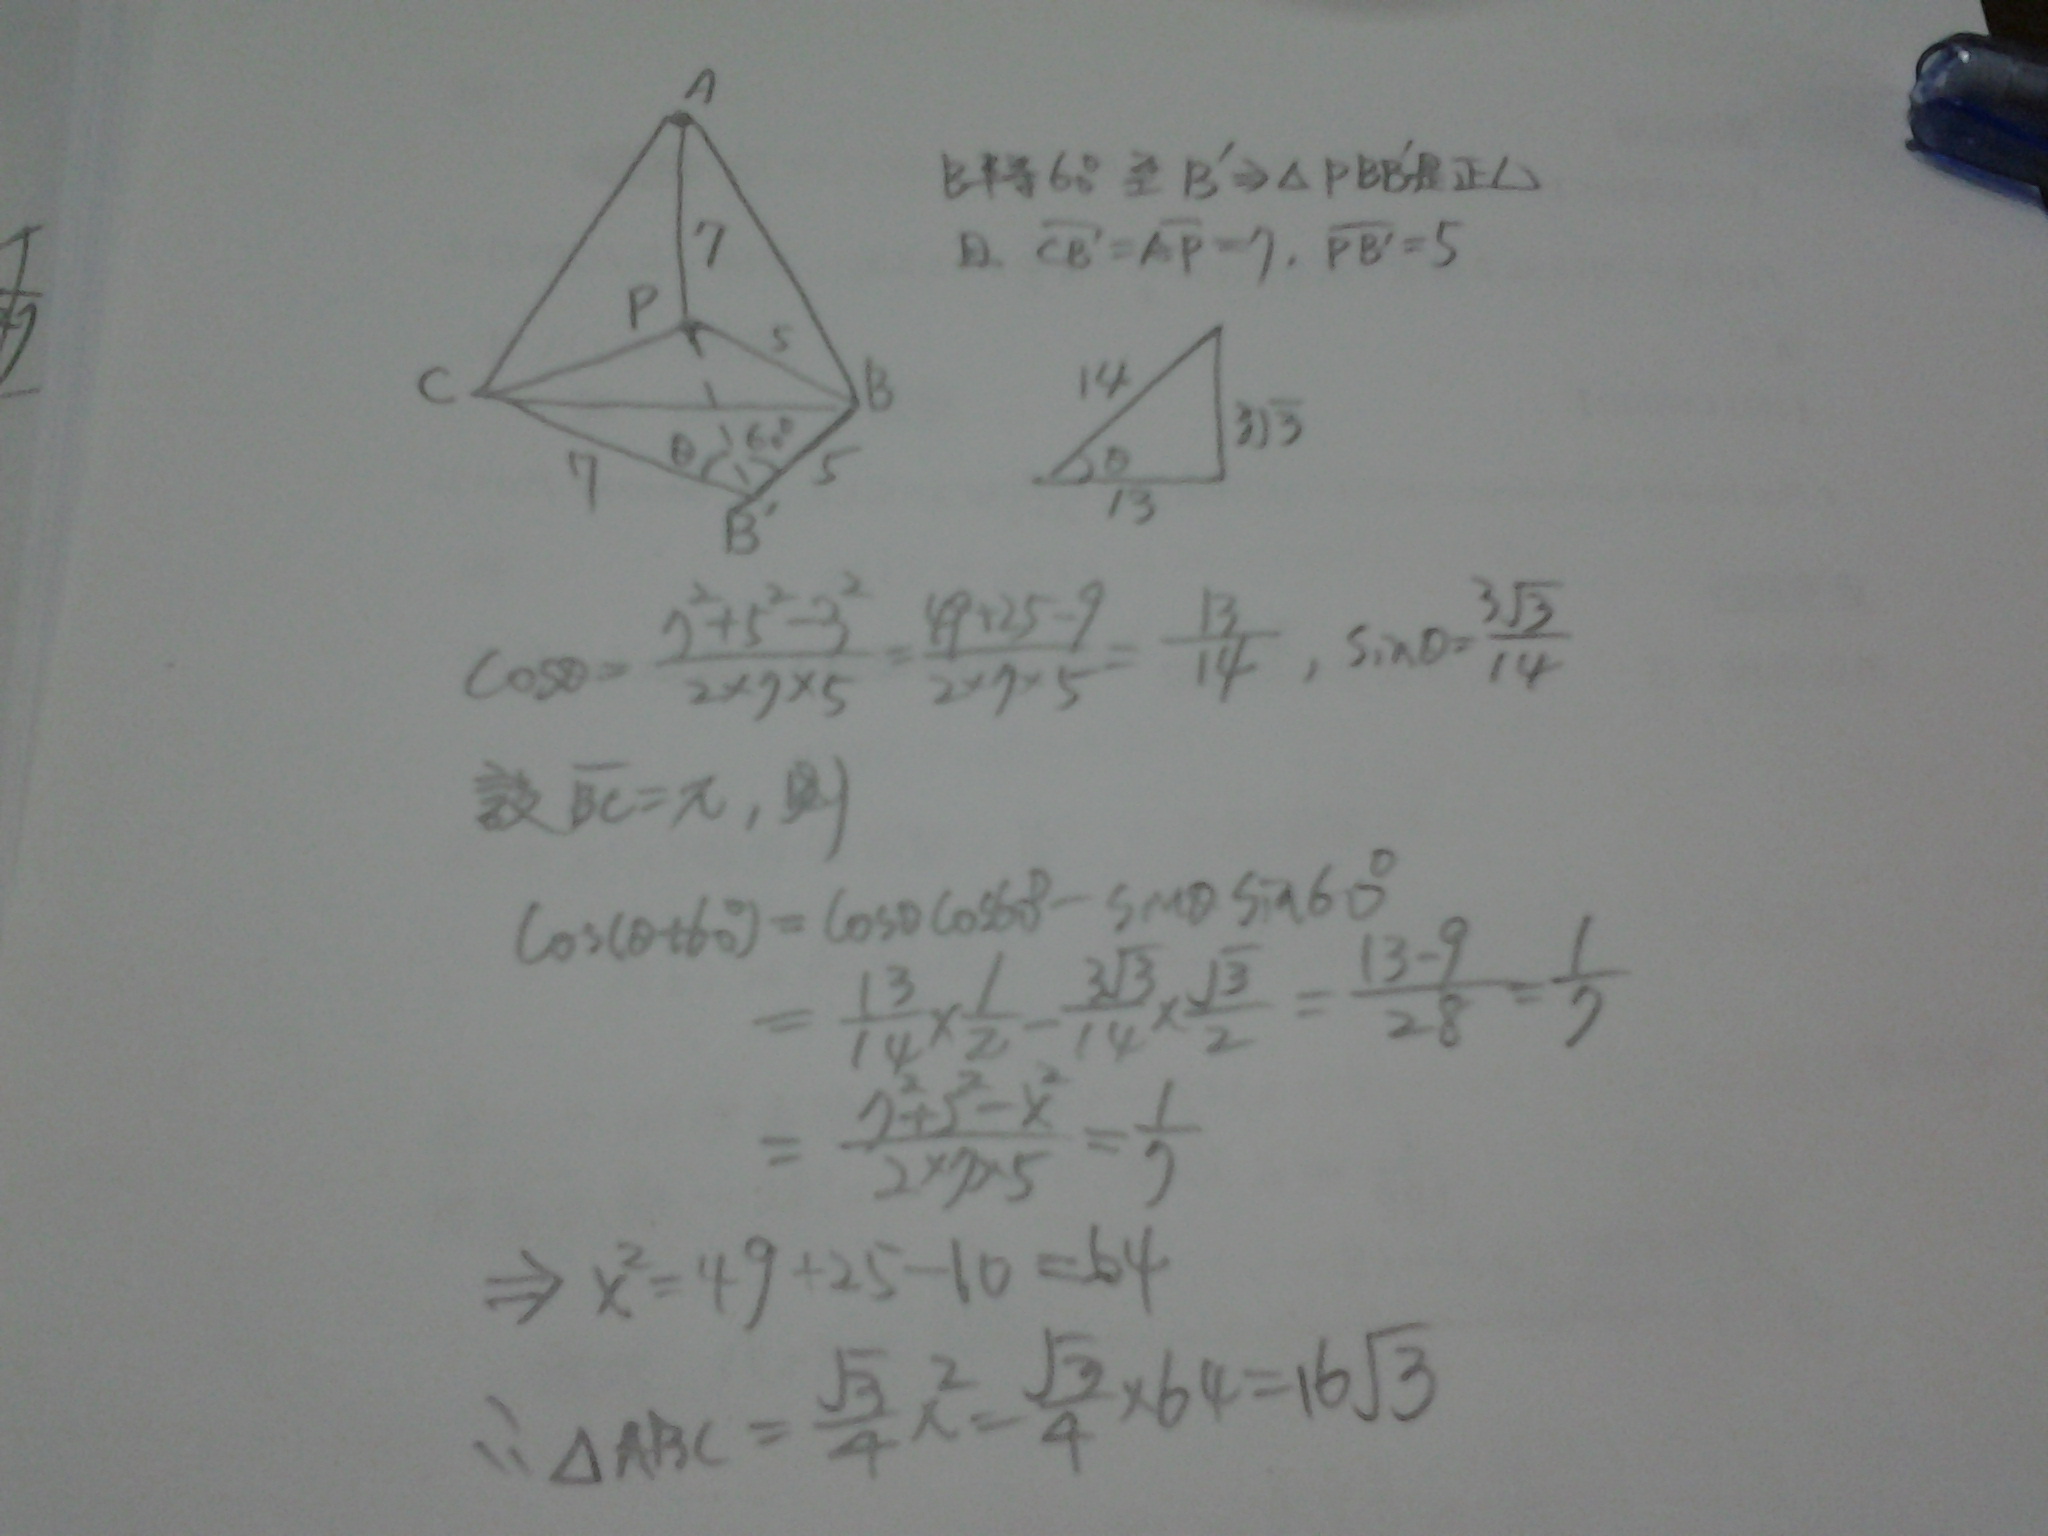 A
7
P
5
C
B
θ
60°
7
5
B'
60° 至 B' ⇒ △PBB'是正△
且 CB' = AP = 7, PB' = 5
14
3√3
θ
13
cosθ = (7²+5²-3²)/(2×7×5) = (49+25-9)/(2×7×5) = 13/14, sinθ = 3√3/14
設 BC = x, 則
cos(θ+60°) = cosθcos60° - sinθ sin60°
= 13/14 × 1/2 - 3√3/14 × √3/2 = (13-9)/28 = 1/7
= (7²+5²-x²)/(2×7×5) = 1/7
⇒ x² = 49+25-10 = 64
∴ △ABC = √3/4 x² = √3/4 × 64 = 16√3